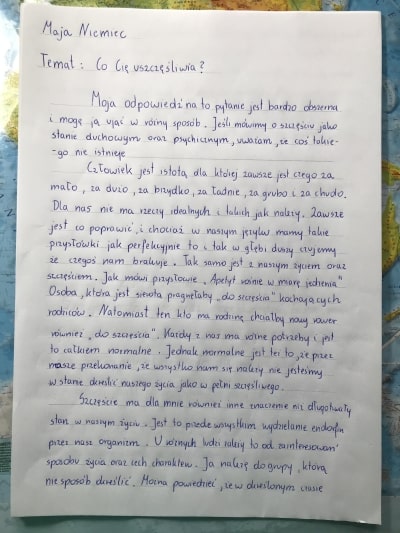 Maja Niemiec
Temat: Co Cię uszczęśliwia?
Moja odpowiedź na to pytanie jest bardzo obszerna
i mogę ją ująć w różny sposób. Jeśli mówimy o szczęściu jako
stanie duchowym oraz psychicznym, uważam, że coś takie-
-go nie istnieje.
Człowiek jest istotą dla której zawsze jest czego za
mało, za dużo, za brzydko, za ładnie, za grubo i za chudo.
Dla nas nie ma rzeczy idealnych i takich jak należy. Zawsze
jest co poprawić, i chociaż w naszym języku mamy takie
przysłówki jak perfekcyjnie to i tak w głębi duszy czujemy
że czegoś nam brakuje. Tak samo jest z naszym życiem oraz
szczęściem. Jak mówi przysłowie „Apetyt rośnie w miarę jedzenia"
Osoba, która jest sierotą pragnęłaby „do szczęścia" kochających
rodziców. Natomiast ten kto ma rodzinę chciałby nowy rower
również „do szczęścia". Każdy z nas ma różne potrzeby i jest
to całkiem normalne. Jednak normalne jest też to, że przez
nasze przekonanie, że wszystko nam się należy nie jesteśmy
w stanie określić naszego życia jako w pełni szczęśliwego.
Szczęście ma dla mnie również inne znaczenie niż długotrwały
stan w naszym życiu. Jest to przede wszystkim wydzielanie endorfin
przez nasz organizm. U różnych ludzi zależy to od zainteresowań
sposobu życia oraz cech charakteru. Ja należę do grupy, którą
nie sposób określić. Można powiedzieć, że w określonym czasie